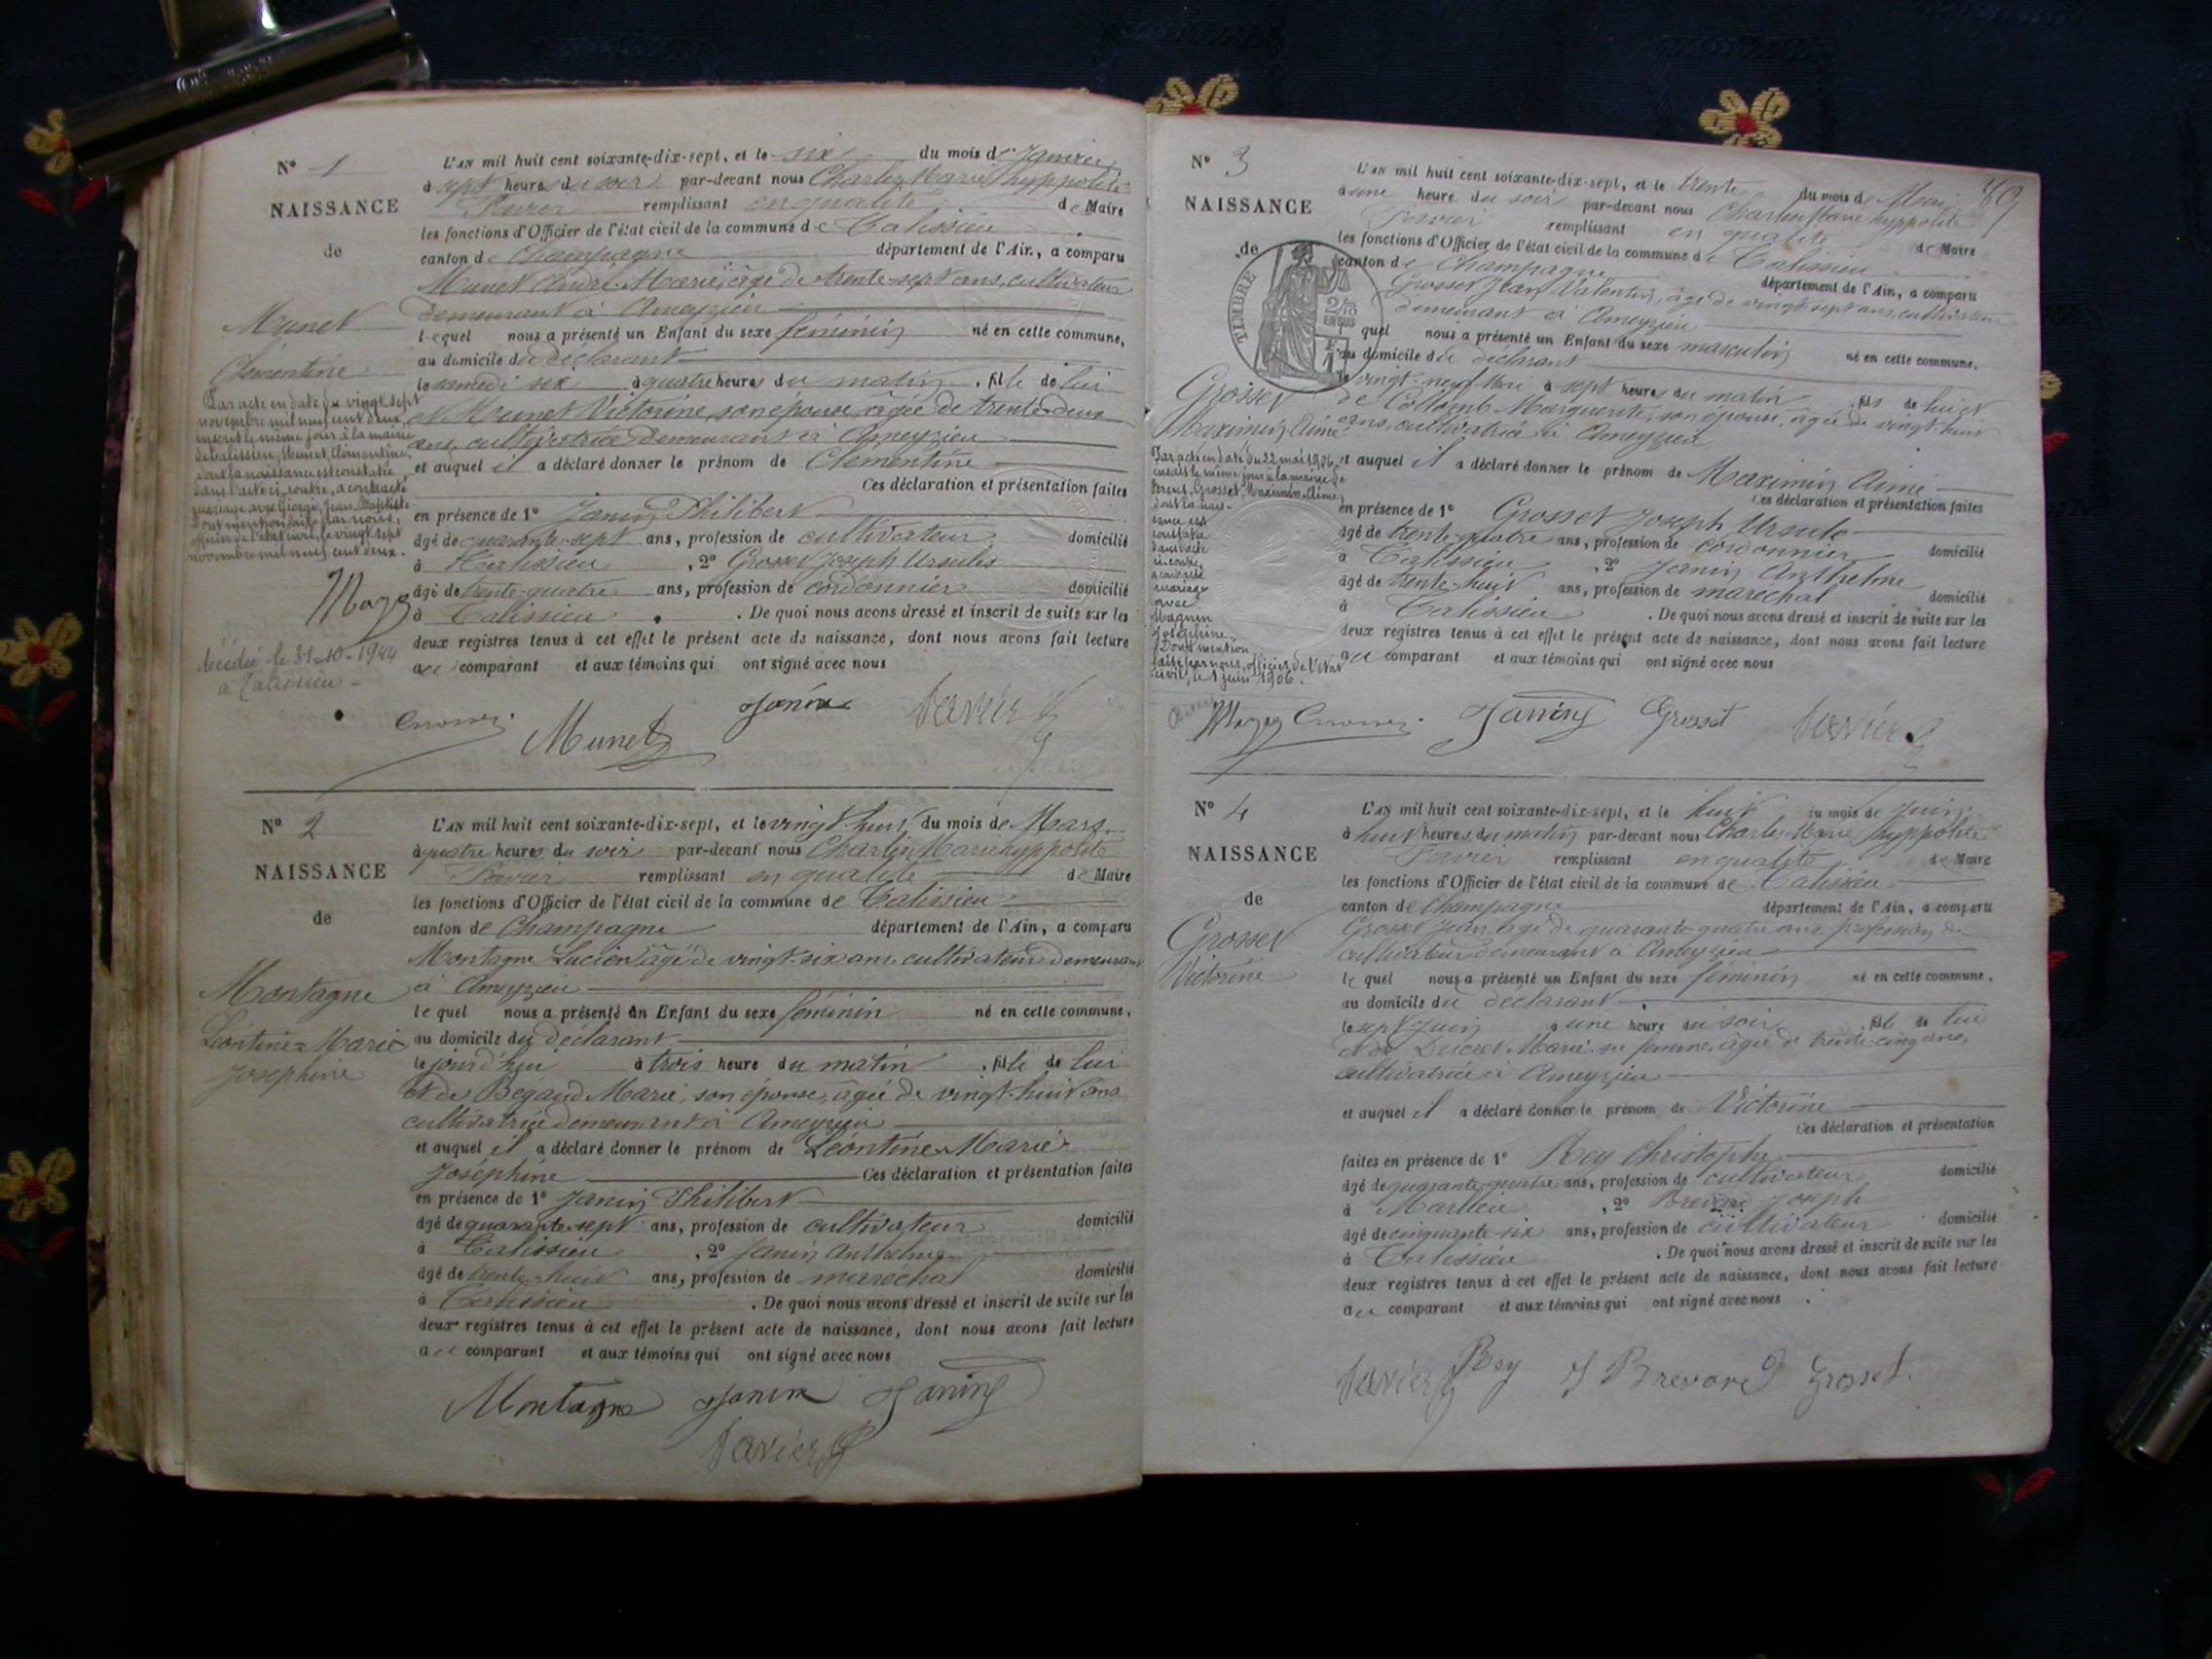 N° 1
NAISSANCE
de
Munet
Clémentine
Par acte en date du vingt sept
novembre mil neuf cent deux,
inscrit le même jour à la mairie
de Talissieu, Munet, Clémentine,
dont la naissance est constatée
dans l'acte ci-contre, a contracté
mariage avec Giorgi, Jean-Baptiste
Dont mention faite par nous,
officier de l'état civil, le vingt sept
novembre mil neuf cent deux.
décédée le 31-10-1944
à Talissieu
L'AN mil huit cent soixante-dix-sept, et le six du mois de Janvier
à sept heures du soir par-devant nous Charles Marie hyppolite
remplissant en qualité de Maire
les fonctions d'Officier de l'état civil de la commune de Talissieu
canton de Champagne département de l'Ain, a comparu
Munet André-Marie, âgé de trente-sept ans, cultivateur
demeurant à Ameyzieu
lequel nous a présenté un Enfant du sexe féminin né en cette commune,
au domicile du déclarant
le samedi six à quatre heures du matin, fille de lui
et Munet Victorine, son épouse, âgée de trente-deux
ans, cultivatrice demeurant à Ameyzieu
et auquel il a déclaré donner le prénom de Clémentine
Ces déclaration et présentation faites
en présence de 1° Janin Philibert
âgé de quarante-sept ans, profession de cultivateur domicilié
à Talissieu, 2° Grosset Joseph Ursule
âgé de trente-quatre ans, profession de cordonnier domicilié
à Talissieu. De quoi nous avons dressé et inscrit de suite sur les
deux registres tenus à cet effet le présent acte de naissance, dont nous avons fait lecture
au comparant et aux témoins qui ont signé avec nous
Munet Janin
N° 2
NAISSANCE
de
Montagne
Léontine-Marie
Joséphine
L'AN mil huit cent soixante-dix-sept, et le vingt huit du mois de Mars
à quatre heures du soir par-devant nous Charles Marie hyppolite
remplissant en qualité de Maire
les fonctions d'Officier de l'état civil de la commune de Talissieu
canton de Champagne département de l'Ain, a comparu
Montagne Lucien âgé de vingt-six ans cultivateur demeurant
à Ameyzieu
lequel nous a présenté un Enfant du sexe féminin né en cette commune,
au domicile du déclarant
le jourd'hui à trois heure du matin, fille de lui
et de Begaud Marie, son épouse, âgée de vingt-huit ans
cultivatrice demeurant à Ameyzieu
et auquel il a déclaré donner le prénom de Léontine Marie
Joséphine Ces déclaration et présentation faites
en présence de 1° Janin Philibert
âgé de quarante-sept ans, profession de cultivateur domicilié
à Talissieu, 2° Janin Anthelme
âgé de trente-huit ans, profession de maréchal domicilié
à Talissieu. De quoi nous avons dressé et inscrit de suite sur les
deux registres tenus à cet effet le présent acte de naissance, dont nous avons fait lecture
au comparant et aux témoins qui ont signé avec nous
Montagne Janin Janin
N° 3
NAISSANCE
de
TIMBRE
Grosset
Maximin Aimé
Par acte en date du 22 mai 1906
inscrit le même jour à la mairie de
Grosset, Maximin-Aimé,
dont la nais-
sance est
constatée
dans l'acte
ci-contre,
a contracté
mariage
avec
Magnin
Joséphine.
Dont mention
faite par nous, officier de l'état
civil, le 1 juin 1906.
L'AN mil huit cent soixante-dix-sept, et le trente du mois de Mai
à une heure du soir par-devant nous Charles Marie hyppolite
remplissant en qualité de Maire
les fonctions d'Officier de l'état civil de la commune de Talissieu
canton de Champagne département de l'Ain, a comparu
Grosset Jean Valentin, âgé de vingt sept ans, cultivateur
demeurant à Ameyzieu
quel nous a présenté un Enfant du sexe masculin né en cette commune,
au domicile du déclarant
le vingt-neuf Mai à sept heures du matin, fils de lui et
de Collomb Marguerite, son épouse, âgée de vingt huit
ans, cultivatrice à Ameyzieu
et auquel il a déclaré donner le prénom de Maximin Aimé
Ces déclaration et présentation faites
en présence de 1° Grosset Joseph Ursule
âgé de trente-quatre ans, profession de cordonnier domicilié
à Talissieu, 2° Janin Anthelme
âgé de trente-huit ans, profession de maréchal domicilié
à Talissieu. De quoi nous avons dressé et inscrit de suite sur les
deux registres tenus à cet effet le présent acte de naissance, dont nous avons fait lecture
au comparant et aux témoins qui ont signé avec nous
Janin Grosset
N° 4
NAISSANCE
de
Grosset
Victorine
L'AN mil huit cent soixante-dix-sept, et le huit du mois de Juin
à huit heures du matin par-devant nous Charles Marie hyppolite
remplissant en qualité de Maire
les fonctions d'Officier de l'état civil de la commune de Talissieu
canton de Champagne département de l'Ain, a comparu
Grosset Jean, âgé de quarante quatre ans, profession de
cultivateur demeurant à Ameyzieu
lequel nous a présenté un Enfant du sexe féminin né en cette commune,
au domicile du déclarant
le sept Juin à une heure du soir, fille de lui
et de Ducret Marie sa femme, âgée de trente-cinq ans,
cultivatrice à Ameyzieu
et auquel il a déclaré donner le prénom de Victorine
Ces déclaration et présentation
faites en présence de 1° Rey Christophe
âgé de quarante-quatre ans, profession de cultivateur domicilié
à Marlieu, 2° Brevard Joseph
âgé de cinquante-six ans, profession de cultivateur domicilié
à Talissieu. De quoi nous avons dressé et inscrit de suite sur les
deux registres tenus à cet effet le présent acte de naissance, dont nous avons fait lecture
au comparant et aux témoins qui ont signé avec nous.
Rey J Brevard Grosset.